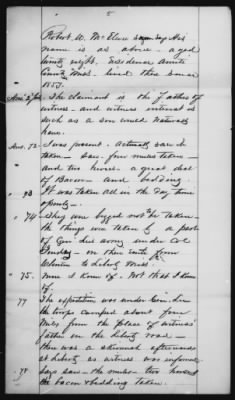 5
Robert W. McElwee says His
name is as above - aged
twenty eight. Residence Amite
County Miss. lived there since
1853.
The claimant is the father of
witness - and witness interest is
such as a son would naturally
have.
Ans. 72 - I was present. Actually saw it
taken - saw five mules taken -
and two horses - a great deal
of Bacon - and bedding.
73 It was taken all in the day time
openly -
74 - They were begged not to be taken -
the things were taken by a part
of Gen'l army under Col
- on their route from
Clinton to Liberty Miss.
75. None I know of. Not that I know
of.
77 The expedition was under Gen.
the troops camped about four
miles from the place of witness'
father on the Liberty road -
there was a skirmish afterwards
at Liberty as witness was informed
78 says saw the mules - two horses
the bacon & bedding taken.